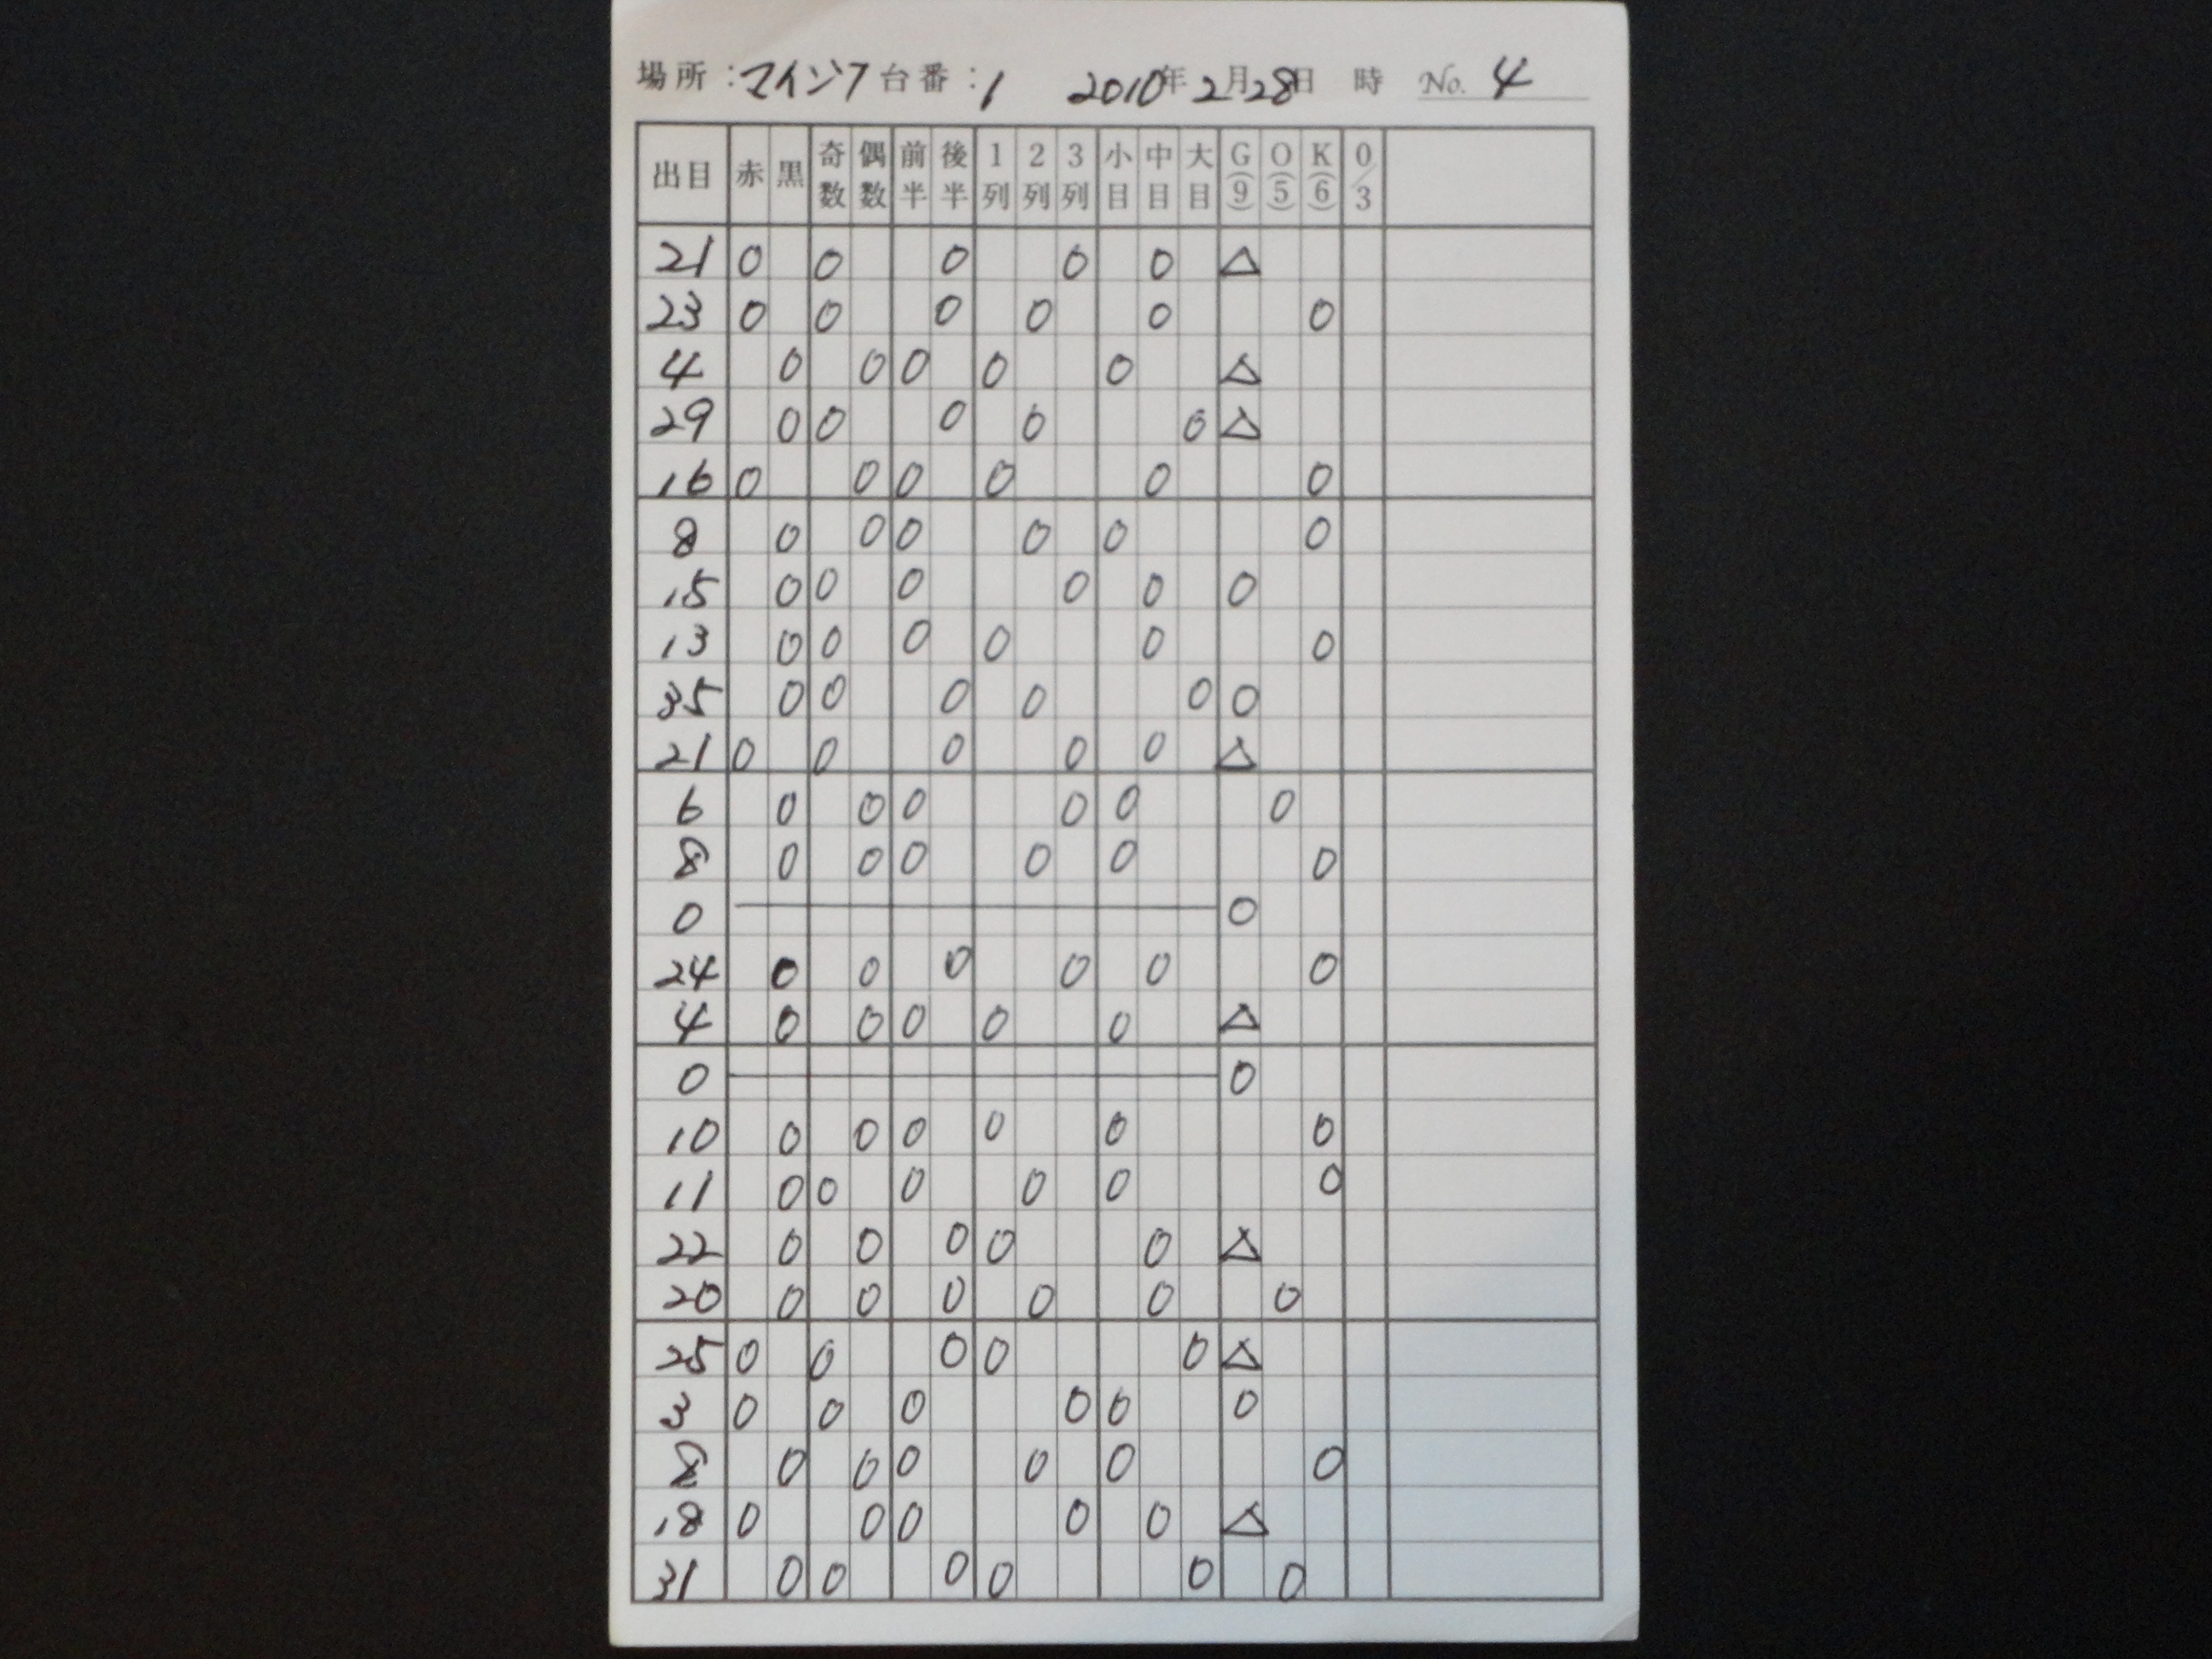 場所:マイジア 台番:1 2010年2月28日 時 No. 4
出目 赤 黒 奇数 偶数 前半 後半 1列 2列 3列 小目 中目 大目 G(9) O(5) K(6) 0/3
21 0 0 0 0 0 △
23 0 0 0 0 0 0
4 0 0 0 0 0 △
29 0 0 0 0 0 △
16 0 0 0 0 0 0
8 0 0 0 0 0 0
15 0 0 0 0 0 0
13 0 0 0 0 0 0
35 0 0 0 0 0 0
21 0 0 0 0 0 △
6 0 0 0 0 0 0
8 0 0 0 0 0 0
0 0
24 0 0 0 0 0 0
4 0 0 0 0 0 △
0 0
10 0 0 0 0 0 0
11 0 0 0 0 0 0
22 0 0 0 0 0 △
20 0 0 0 0 0 0
25 0 0 0 0 0 △
3 0 0 0 0 0 0
8 0 0 0 0 0 0
18 0 0 0 0 0 △
31 0 0 0 0 0 0